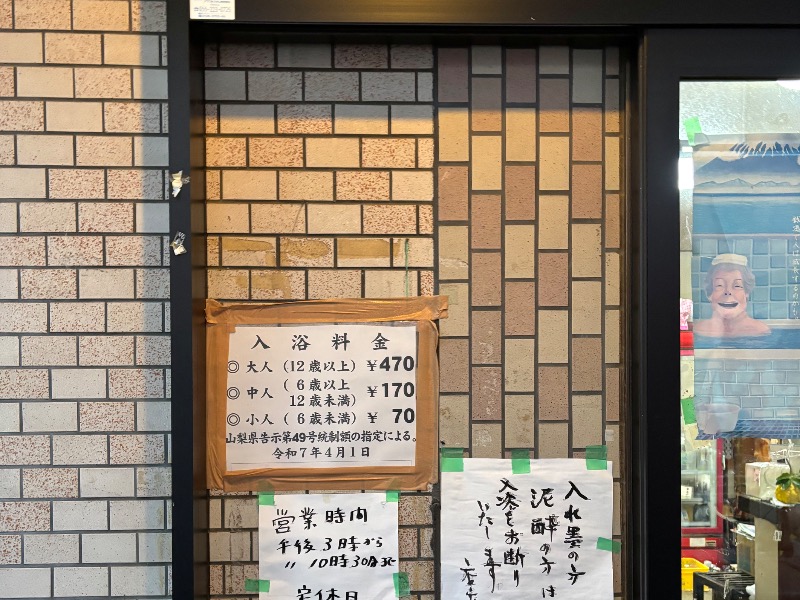 入浴料金
◎大人（12歳以上）￥470
◎中人（6歳以上12歳未満）￥170
◎小人（6歳未満）￥70
山梨県告示第49号統制額の指定による。
令和7年4月1日
営業時間
午後3時から
〃10時30分迄
定休日
入れ墨の方
泥酔の方は
入浴をお断り
いたします